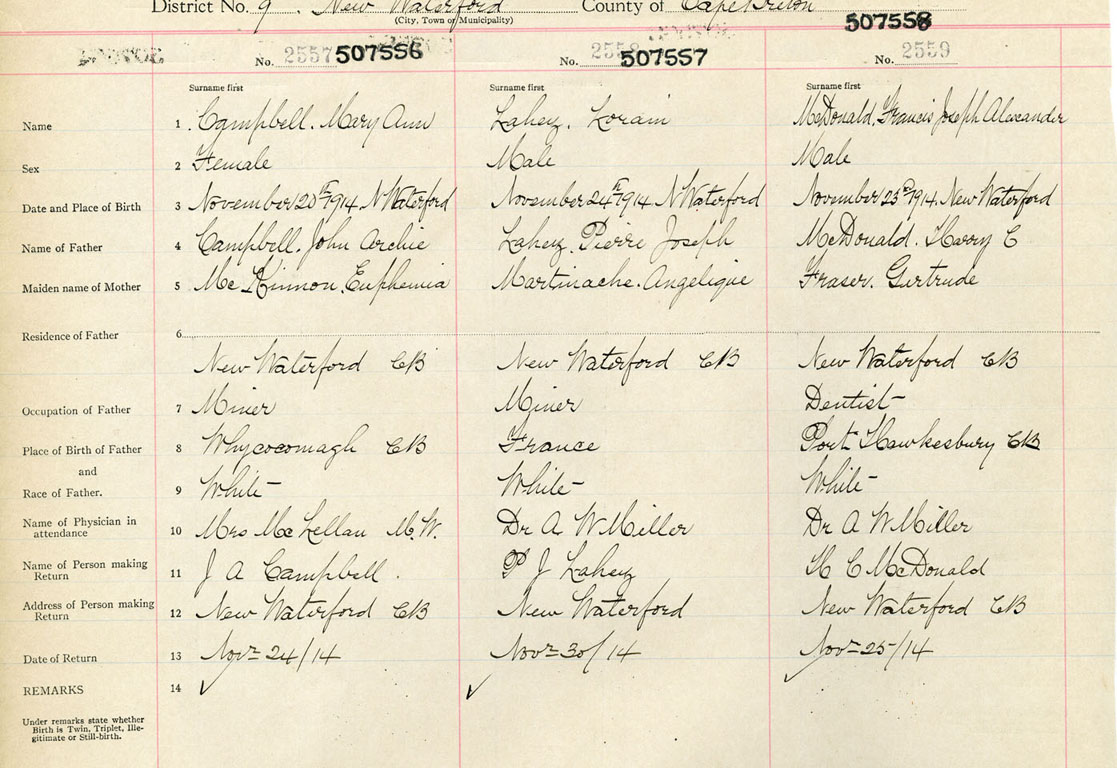 District No. 9. New Waterford County of Cape Breton
(City, Town or Municipality)
507558
No. 2557 507556 No. 507557 No. 2559
Surname first Surname first Surname first
Name 1 Campbell. Mary Ann Lahey. Lorain McDonald. Francis Joseph Alexander
Sex 2 Female Male Male
Date and Place of Birth 3 November 20th 1914 N Waterford November 24th 1914 N. Waterford November 23rd 1914. New Waterford
Name of Father 4 Campbell. John Archie Lahey. Pierre Joseph McDonald. Harry C
Maiden name of Mother 5 McKinnon. Euphemia Martinache. Angelique Fraser. Gertrude
Residence of Father 6
New Waterford CB New Waterford CB New Waterford CB
Occupation of Father 7 Miner Miner Dentist
Place of Birth of Father 8 Whycocomagh CB France Port Hawkesbury CB
and
Race of Father. 9 White White White
Name of Physician in attendance 10 Mrs McLellan M.W. Dr A W Miller Dr A W Miller
Name of Person making Return 11 J A Campbell. P J Lahey H C McDonald
Address of Person making Return 12 New Waterford CB New Waterford New Waterford CB
Date of Return 13 Novr 24/14 Novr 30/14 Novr 25/14
REMARKS 14 ✓ ✓ ✓
Under remarks state whether
Birth is Twin, Triplet, Ille-
gitimate or Still-birth.